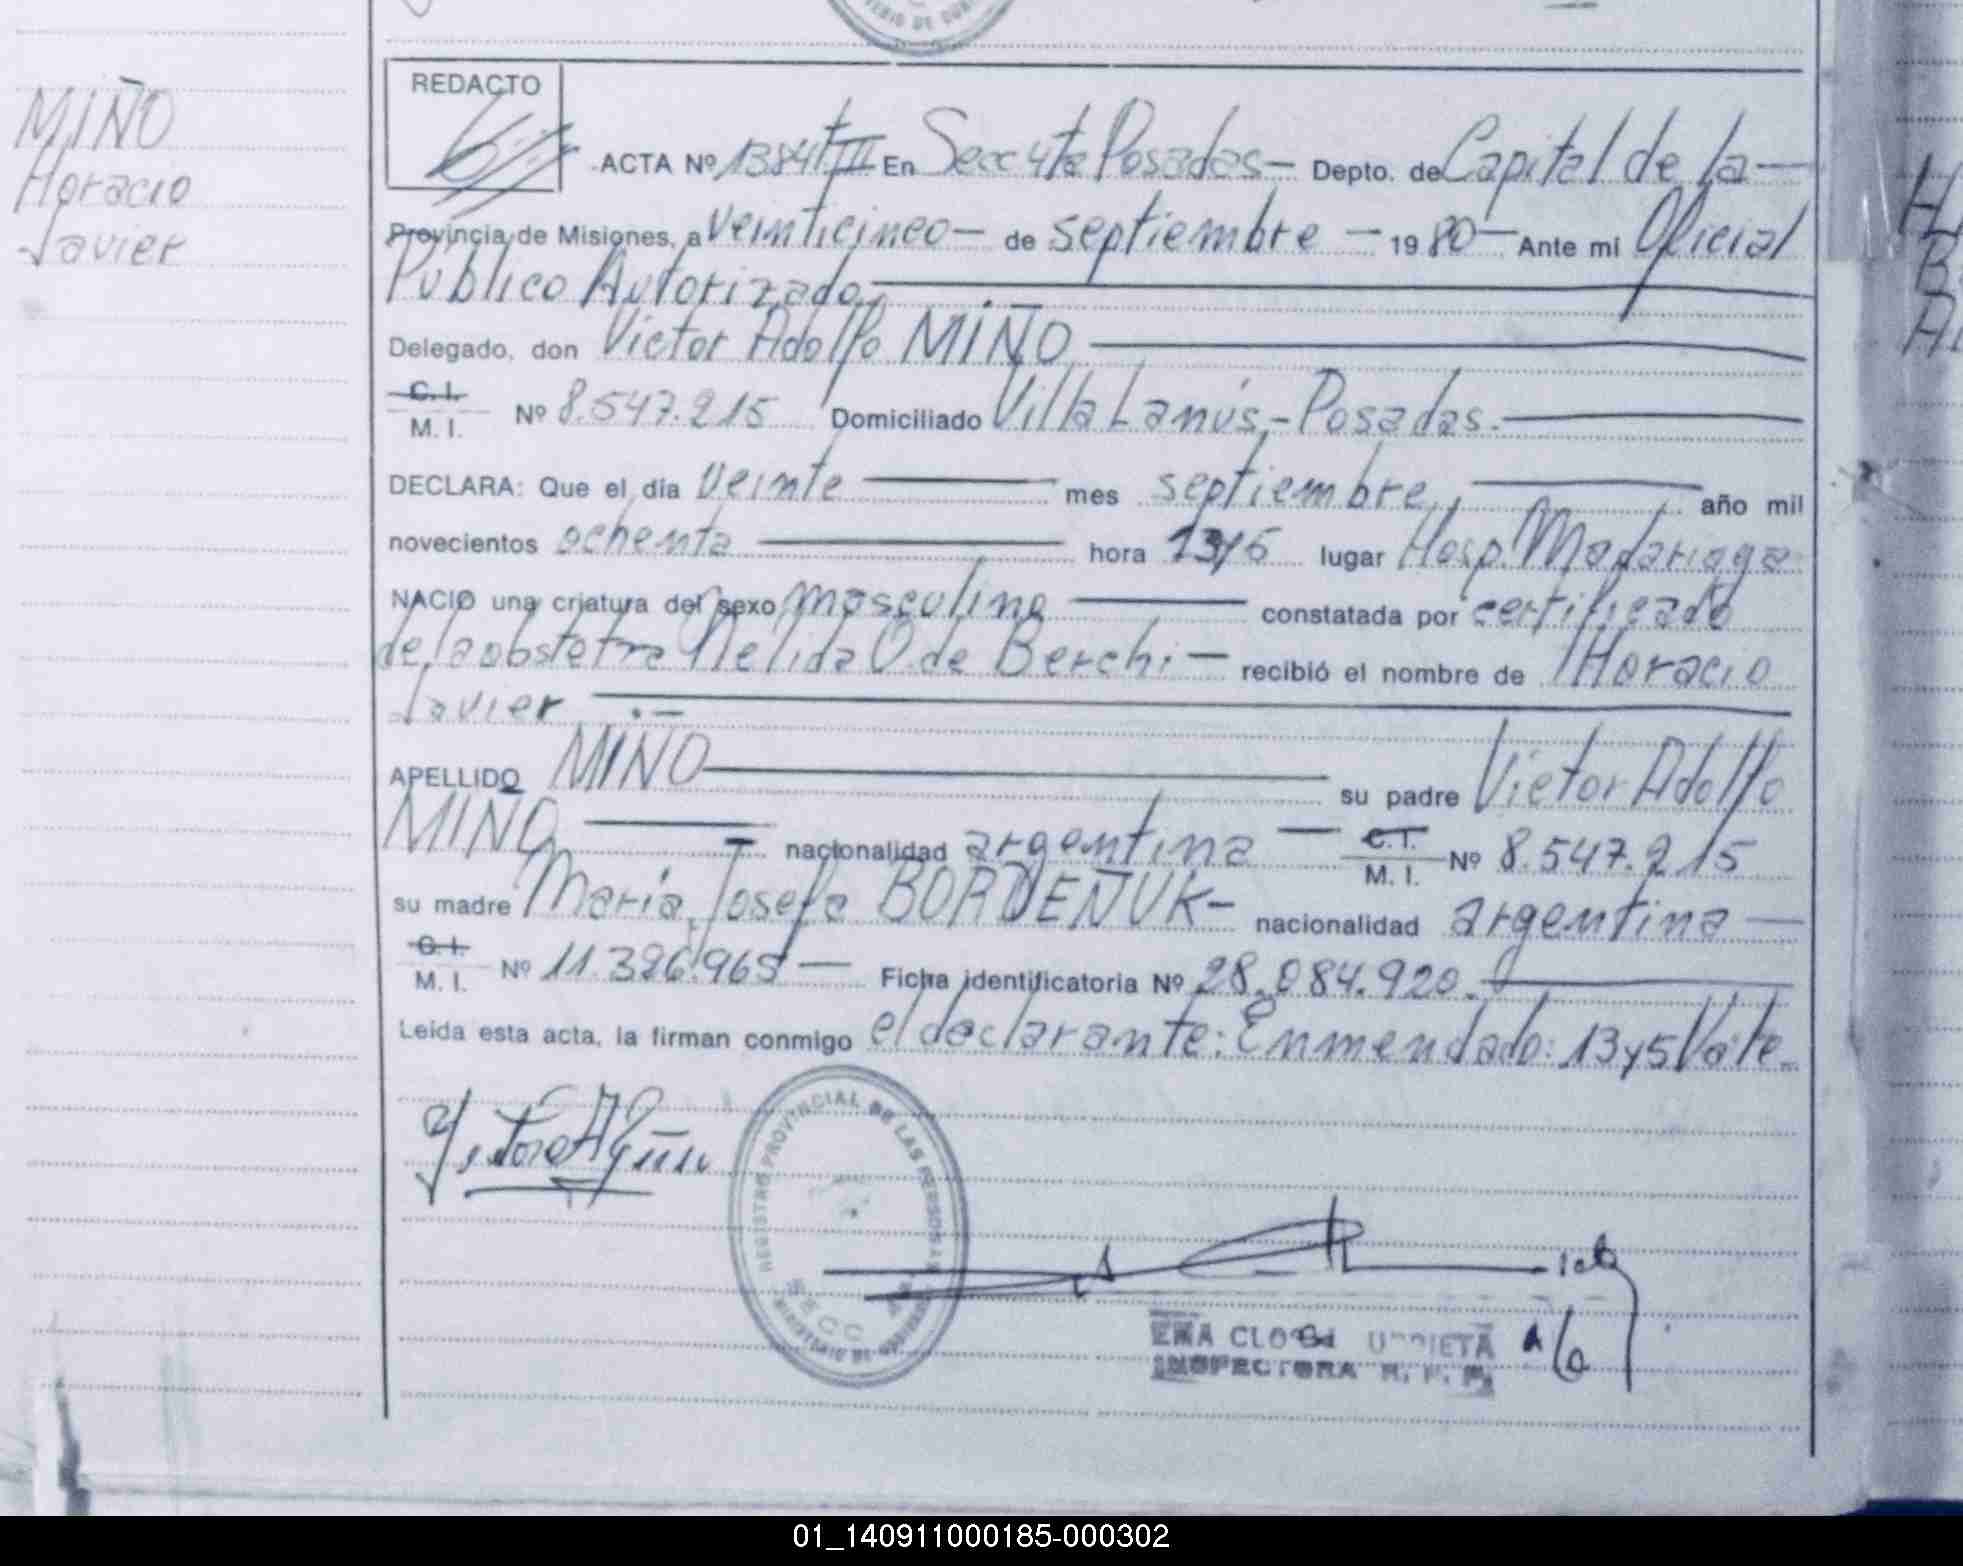 MINISTERIO DE GOBI
MIÑO
Horacio
Javier
REDACTO
ACTA Nº 1384 t III En Secc 4ta Posadas - Depto. de Capital de la -
Provincia de Misiones, a veinticinco - de septiembre - 1980 - Ante mi Oficial
Público Autorizado,
Delegado, don Victor Adolfo MIÑO
C. I.
M. I. Nº 8.547.215 Domiciliado Villa Lanús,- Posadas.
DECLARA: Que el día veinte mes septiembre, año mil
novecientos ochenta hora 13y5 lugar Hosp. Madariaga
NACIO una criatura del sexo masculino constatada por certificado
de la obstetra Nelida O. de Berchi - recibió el nombre de Horacio
Javier
APELLIDO MIÑO su padre Victor Adolfo
MIÑO nacionalidad argentina C.I.
M. I. Nº 8.547.215
su madre María Josefa BORDEÑUK - nacionalidad argentina
C. I.
M. I. Nº 11.326.965 - Ficha identificatoria Nº 28.084.920.
Leída esta acta, la firman conmigo el declarante: Enmendado: 13y5 Vale.
REGISTRO PROVINCIAL DE LAS PERSONAS
SECC
MINISTERIO DE GOBIERNO
EMA URRIETA
INSPECTORA R. P. P.
01_140911000185-000302